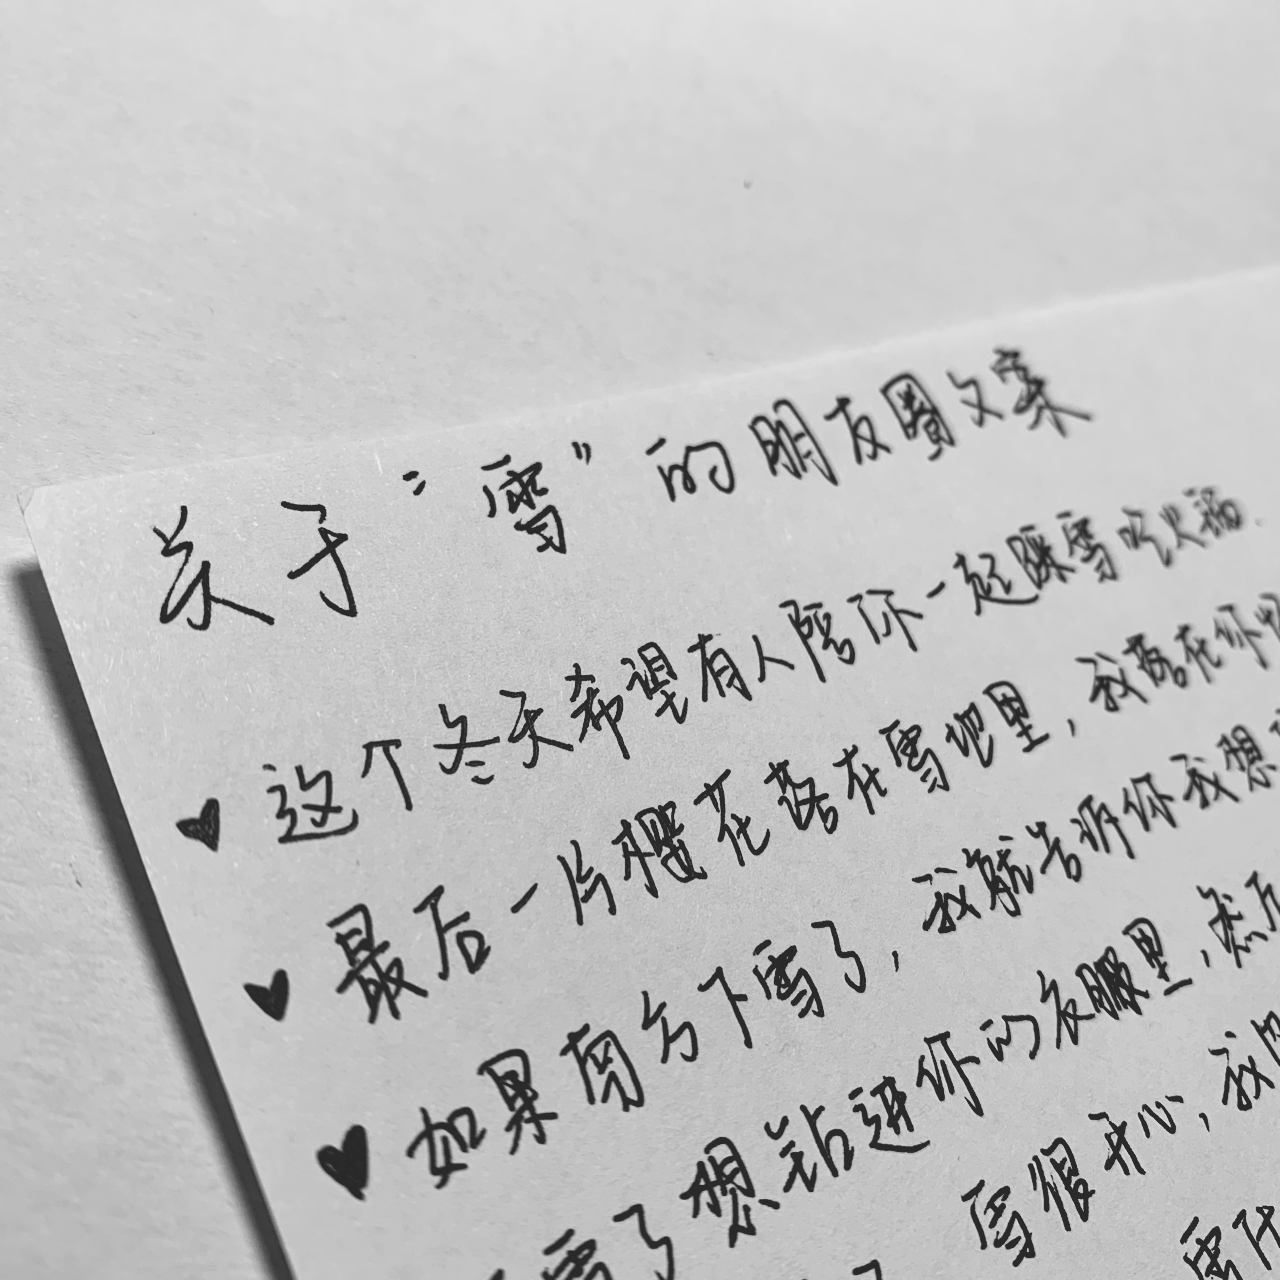 关于“雪”的朋友圈文案
♥ 这个冬天希望有人陪你一起踩雪吃火锅
♥ 最后一片樱花落在雪地里，我落在你
♥ 如果南方下雪了，我就告诉你我想
雪了想钻进你的衣服里，然后
雪很开心，我